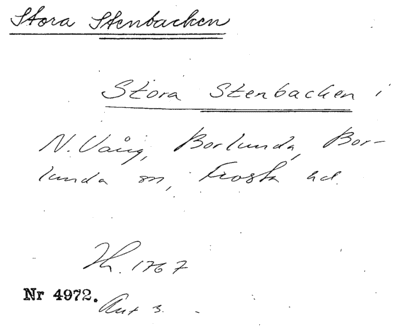 Stora Stenbacken
Stora Stenbacken i
N. Vång, Borlunda, Bor-
lunda sn, Frosta hd.
Lh. 1767
Nr 4972.